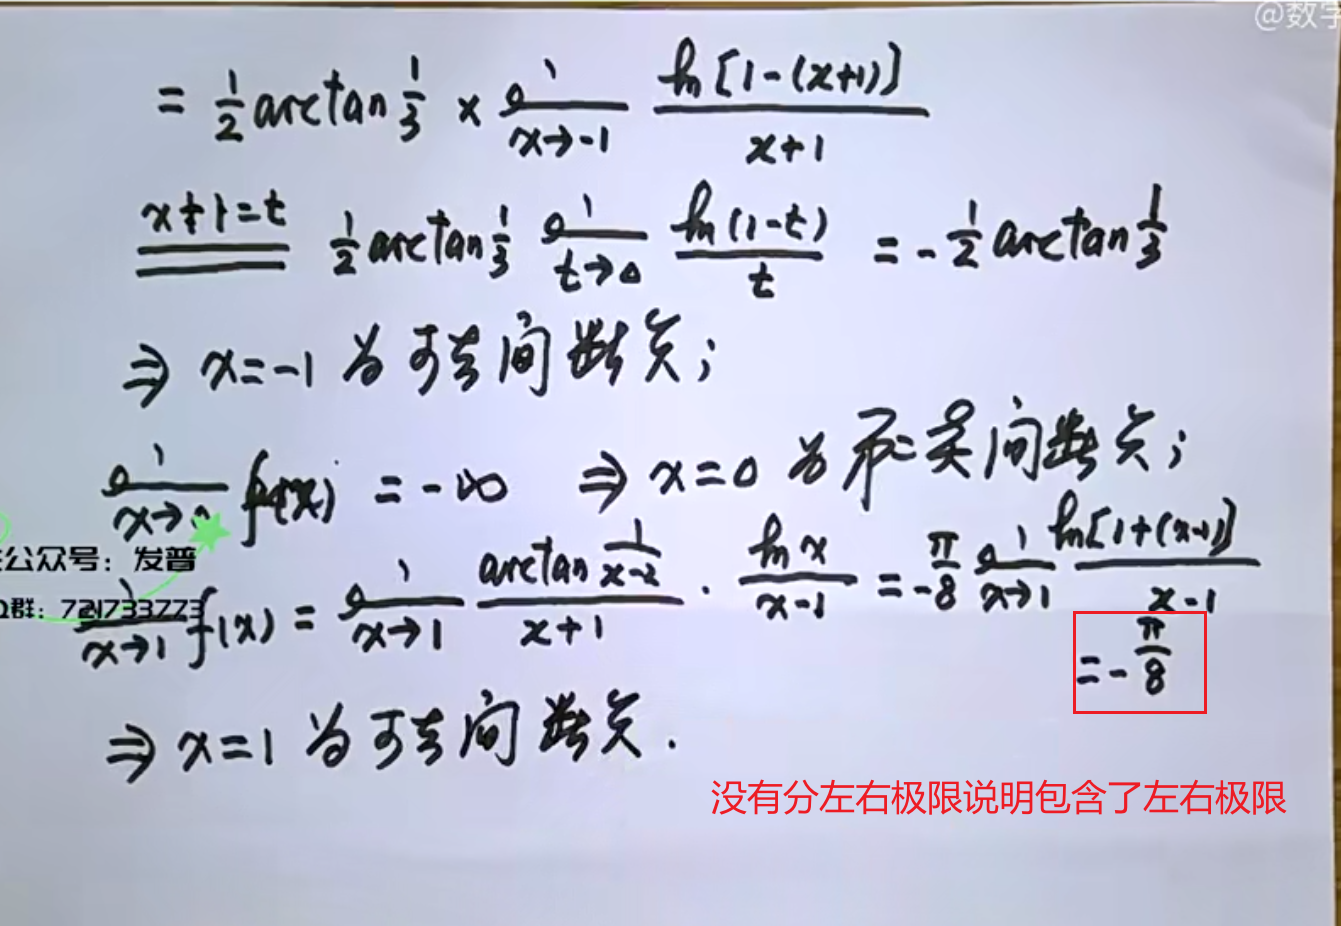 @数学
= 1/2 arctan 1/3 × lim_{x→-1} ln[1-(x+1)]/(x+1)
x+1=t 1/2 arctan 1/3 lim_{t→0} ln(1-t)/t = -1/2 arctan 1/3
⇒ x=-1 为可去间断点;
lim_{x→0} f(x) = -∞ ⇒ x=0 为第二类间断点;
公众号: 发普
Q群: 721733773
lim_{x→1} f(x) = lim_{x→1} arctan 1/(x-2) / (x+1) · ln x/(x-1) = -π/8 lim_{x→1} ln[1+(x-1)]/(x-1)
= -π/8
⇒ x=1 为可去间断点.
没有分左右极限说明包含了左右极限